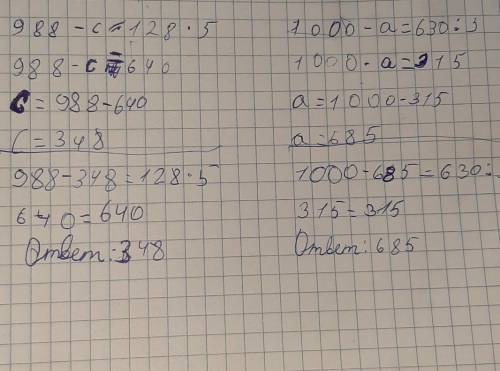 988 - c = 128 · 5
988 - c = 640
c = 988 - 640
c = 348
988 - 348 = 128 · 5
640 = 640
Ответ: 348
1000 - a = 630 :
1000 - a = 315
a = 1000 - 315
a = 685
1000 - 685 = 630 :
315 = 315
Ответ: 685